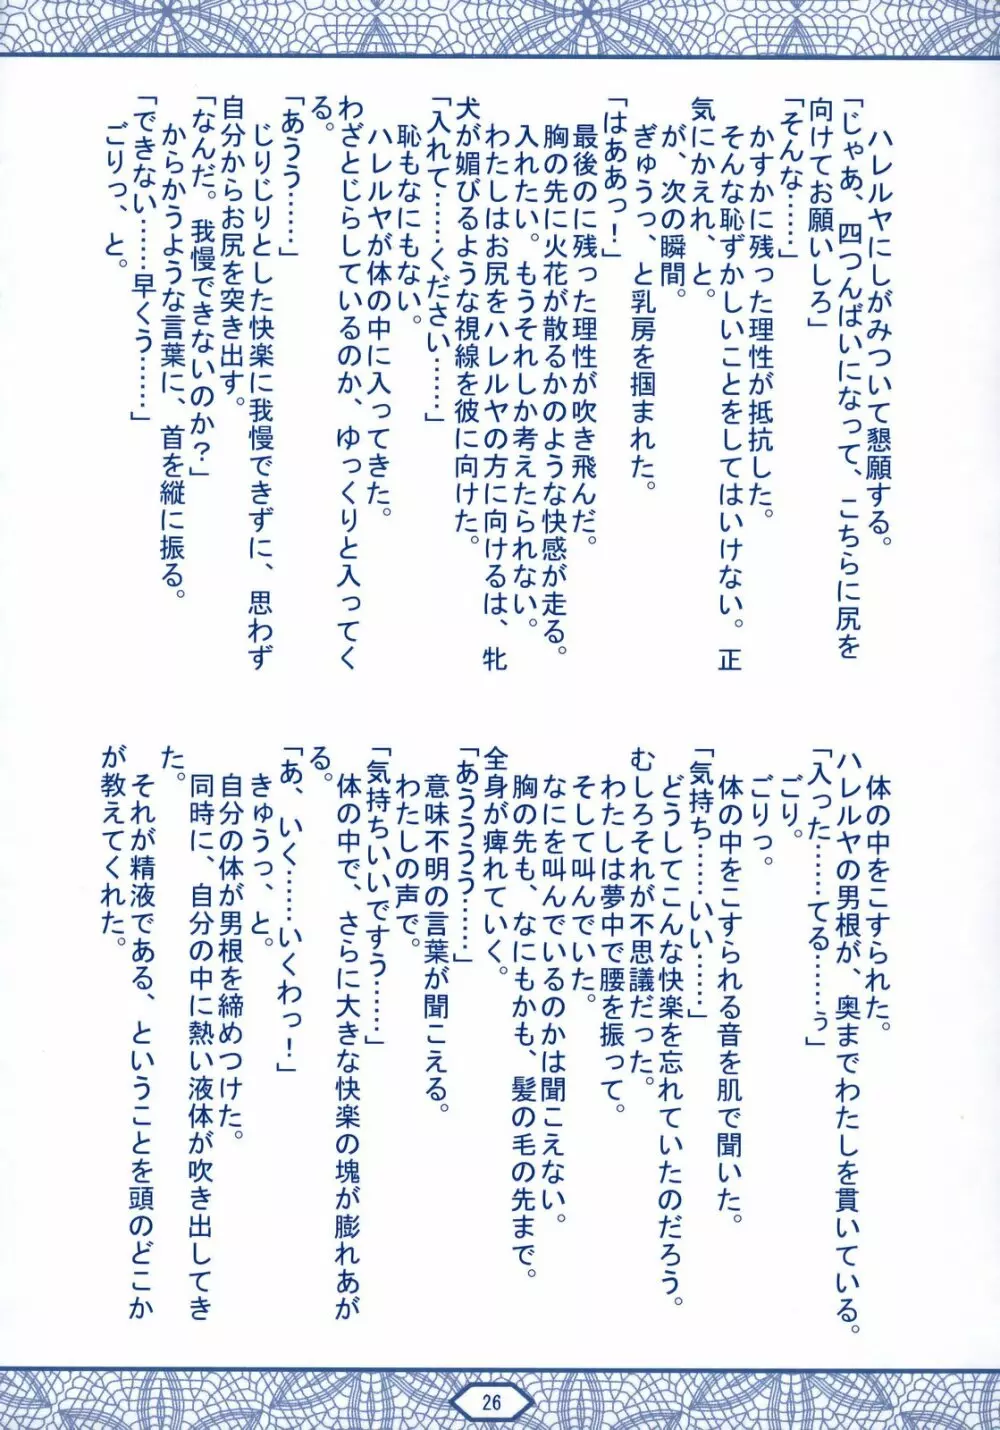 ハレルヤにしがみついて懇願する。
「じゃあ、四つんばいになって、こちらに尻を
向けてお願いしろ」
「そんな……」
かすかに残った理性が抵抗した。
そんな恥ずかしいことをしてはいけない。正
気にかえれ、と。
が、次の瞬間。
ぎゅうっ、と乳房を掴まれた。
「はああっ！」
最後のに残った理性が吹き飛んだ。
胸の先に火花が散るかのような快感が走る。
入れたい。もうそれしか考えたられない。
わたしはお尻をハレルヤの方に向けるは、牝
犬が媚びるような視線を彼に向けた。
「入れて……ください……」
恥もなにもない。
ハレルヤが体の中に入ってきた。
わざとじらしているのか、ゆっくりと入ってく
る。
「あうう……」
じりじりとした快楽に我慢できずに、思わず
自分からお尻を突き出す。
「なんだ。我慢できないのか？」
からかうような言葉に、首を縦に振る。
「できない……早くう……」
ごりっ、と。
体の中をこすられた。
ハレルヤの男根が、奥までわたしを貫いている。
「入った………てる………ぅ」
ごり。
ごりっ。
体の中をこすられる音を肌で聞いた。
「気持ち……いい……」
どうしてこんな快楽を忘れていたのだろう。
むしろそれが不思議だった。
わたしは夢中で腰を振って。
そして叫んでいた。
なにを叫んでいるのかは聞こえない。
胸の先も、なにもかも、髪の毛の先まで。
全身が痺れていく。
「あうううう……」
意味不明の言葉が聞こえる。
わたしの声で。
「気持ちいいですう……」
体の中で、さらに大きな快楽の塊が膨れあが
る。
「あ、いく……いくわっ！」
きゅうっ、と。
自分の体が男根を締めつけた。
同時に、自分の中に熱い液体が吹き出してき
た。
それが精液である、ということを頭のどこか
が教えてくれた。
26